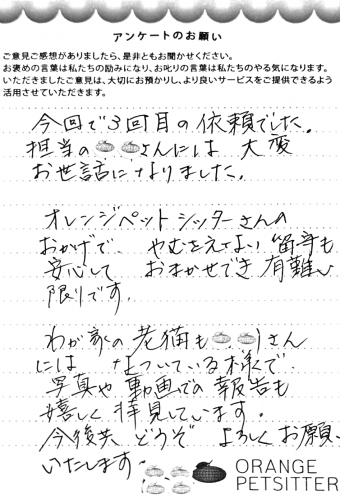 アンケートのお願い
ご意見ご感想がありましたら、是非ともお聞かせください。
お褒めの言葉は私たちの励みになり、お叱りの言葉は私たちのやる気になります。
いただきましたご意見は、大切にお預かりし、より良いサービスをご提供できるよう
活用させていただきます。
今回で3回目の依頼でした。
担当の さんには 大変
お世話になりました。
オレンジペットシッターさんの
おかげで、やむをえない留守も
安心して おまかせでき 有難い
限りです。
わが家の老猫も さん
には なついている様で、
写真や動画での報告も
嬉しく拝見しています。
今後共 どうぞ よろしくお願い
いたします。
ORANGE
PETSITTER